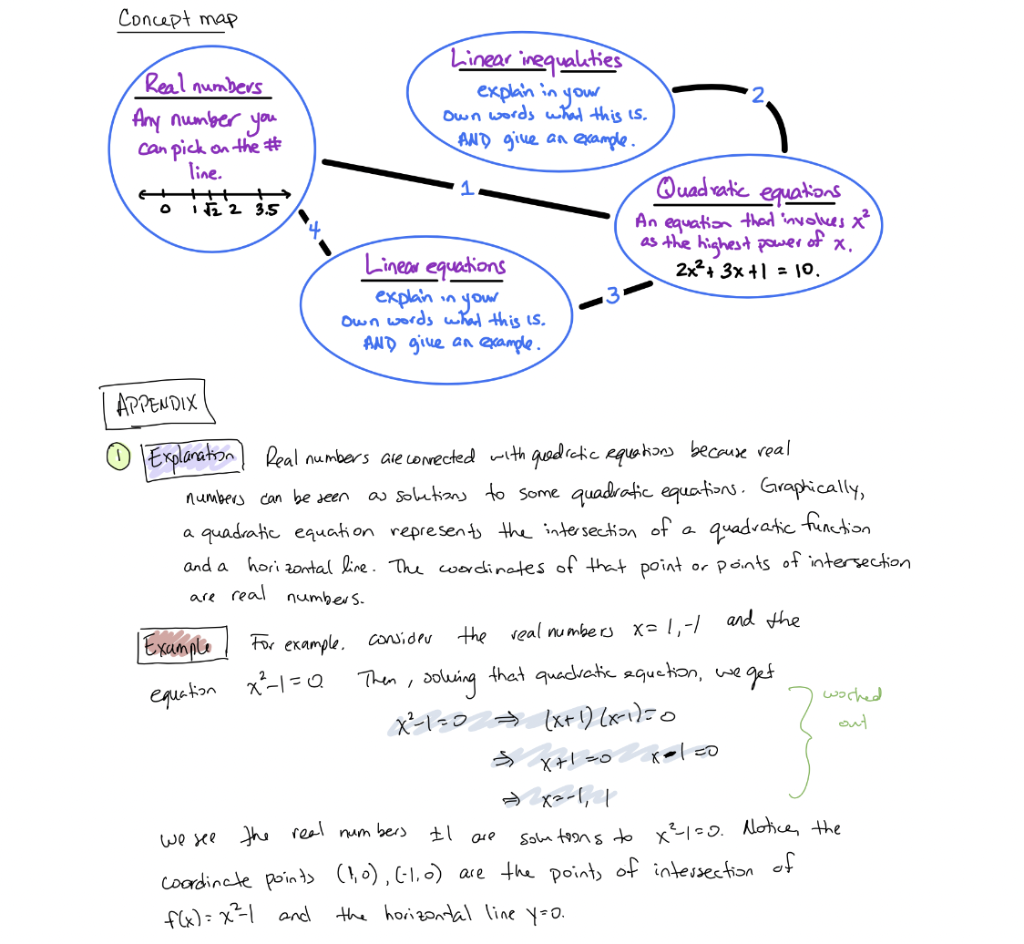 Concept map
Real numbers
Any number you
can pick on the #
line.
0 1 √2 2 3.5
Linear inequalities
explain in your
own words what this is.
AND give an example.
2
1
Quadratic equations
An equation that involves x²
as the highest power of x.
2x² + 3x + 1 = 10.
4
Linear equations
explain in your
own words what this is.
AND give an example.
3
APPENDIX
1 Explanation Real numbers are connected with quadratic equations because real
numbers can be seen as solutions to some quadratic equations. Graphically,
a quadratic equation represents the intersection of a quadratic function
and a horizontal line. The coordinates of that point or points of intersection
are real numbers.
Example For example, consider the real numbers x = 1, -1 and the
equation x²-1=0. Then, solving that quadratic equation, we get
x²-1=0 ⇒ (x+1)(x-1)=0
⇒ x+1=0 x-1=0
⇒ x=-1, 1
worked
out
we see the real numbers ±1 are solutions to x²-1=0. Notice, the
coordinate points (1,0), (-1,0) are the points of intersection of
f(x) = x²-1 and the horizontal line y=0.